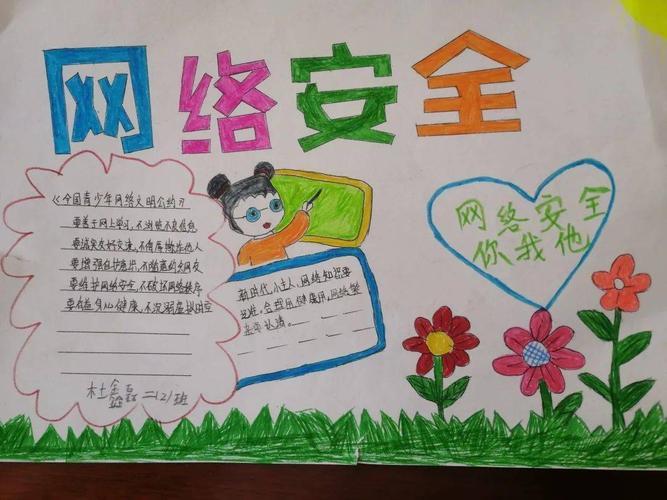 网络安全
《全国青少年网络文明公约》
要善于网上学习,不浏览不良信息
要诚实友好交流,不侮辱欺诈他人
要增强自护意识,不随意约会网友
要维护网络安全,不破坏网络秩序
要有益身心健康,不沉溺虚拟时空
二(2)班
新时代,小主人,网络知识要
记准。合理用,健康用,网络弊
要认清。
网络安全
你我他